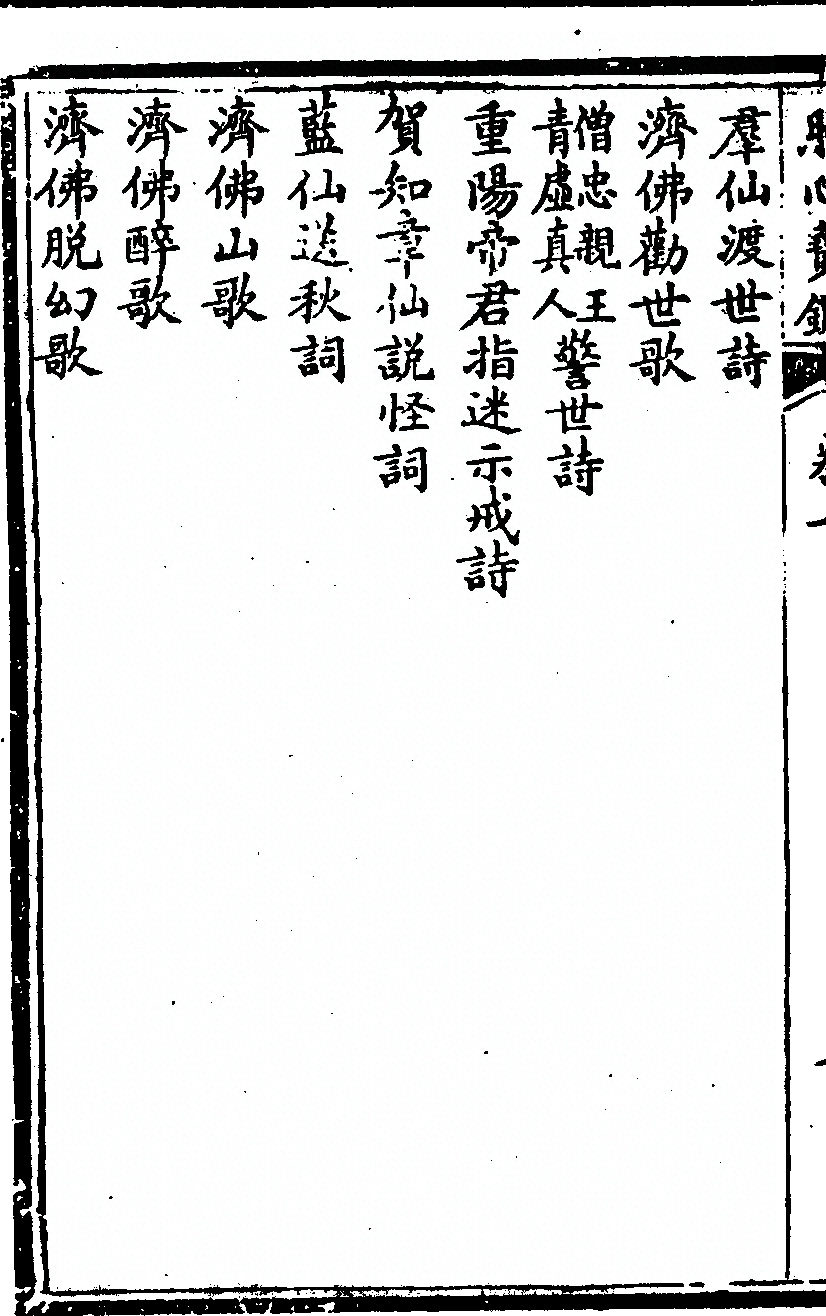 羣仙渡世詩
濟佛勸世歌
僧忠親王
青虛真人
警世詩
重陽帝君指迷示戒詩
賀知章仙説怪詞
藍仙送秋詞
濟佛山歌
濟佛醉歌
濟佛脱幻歌